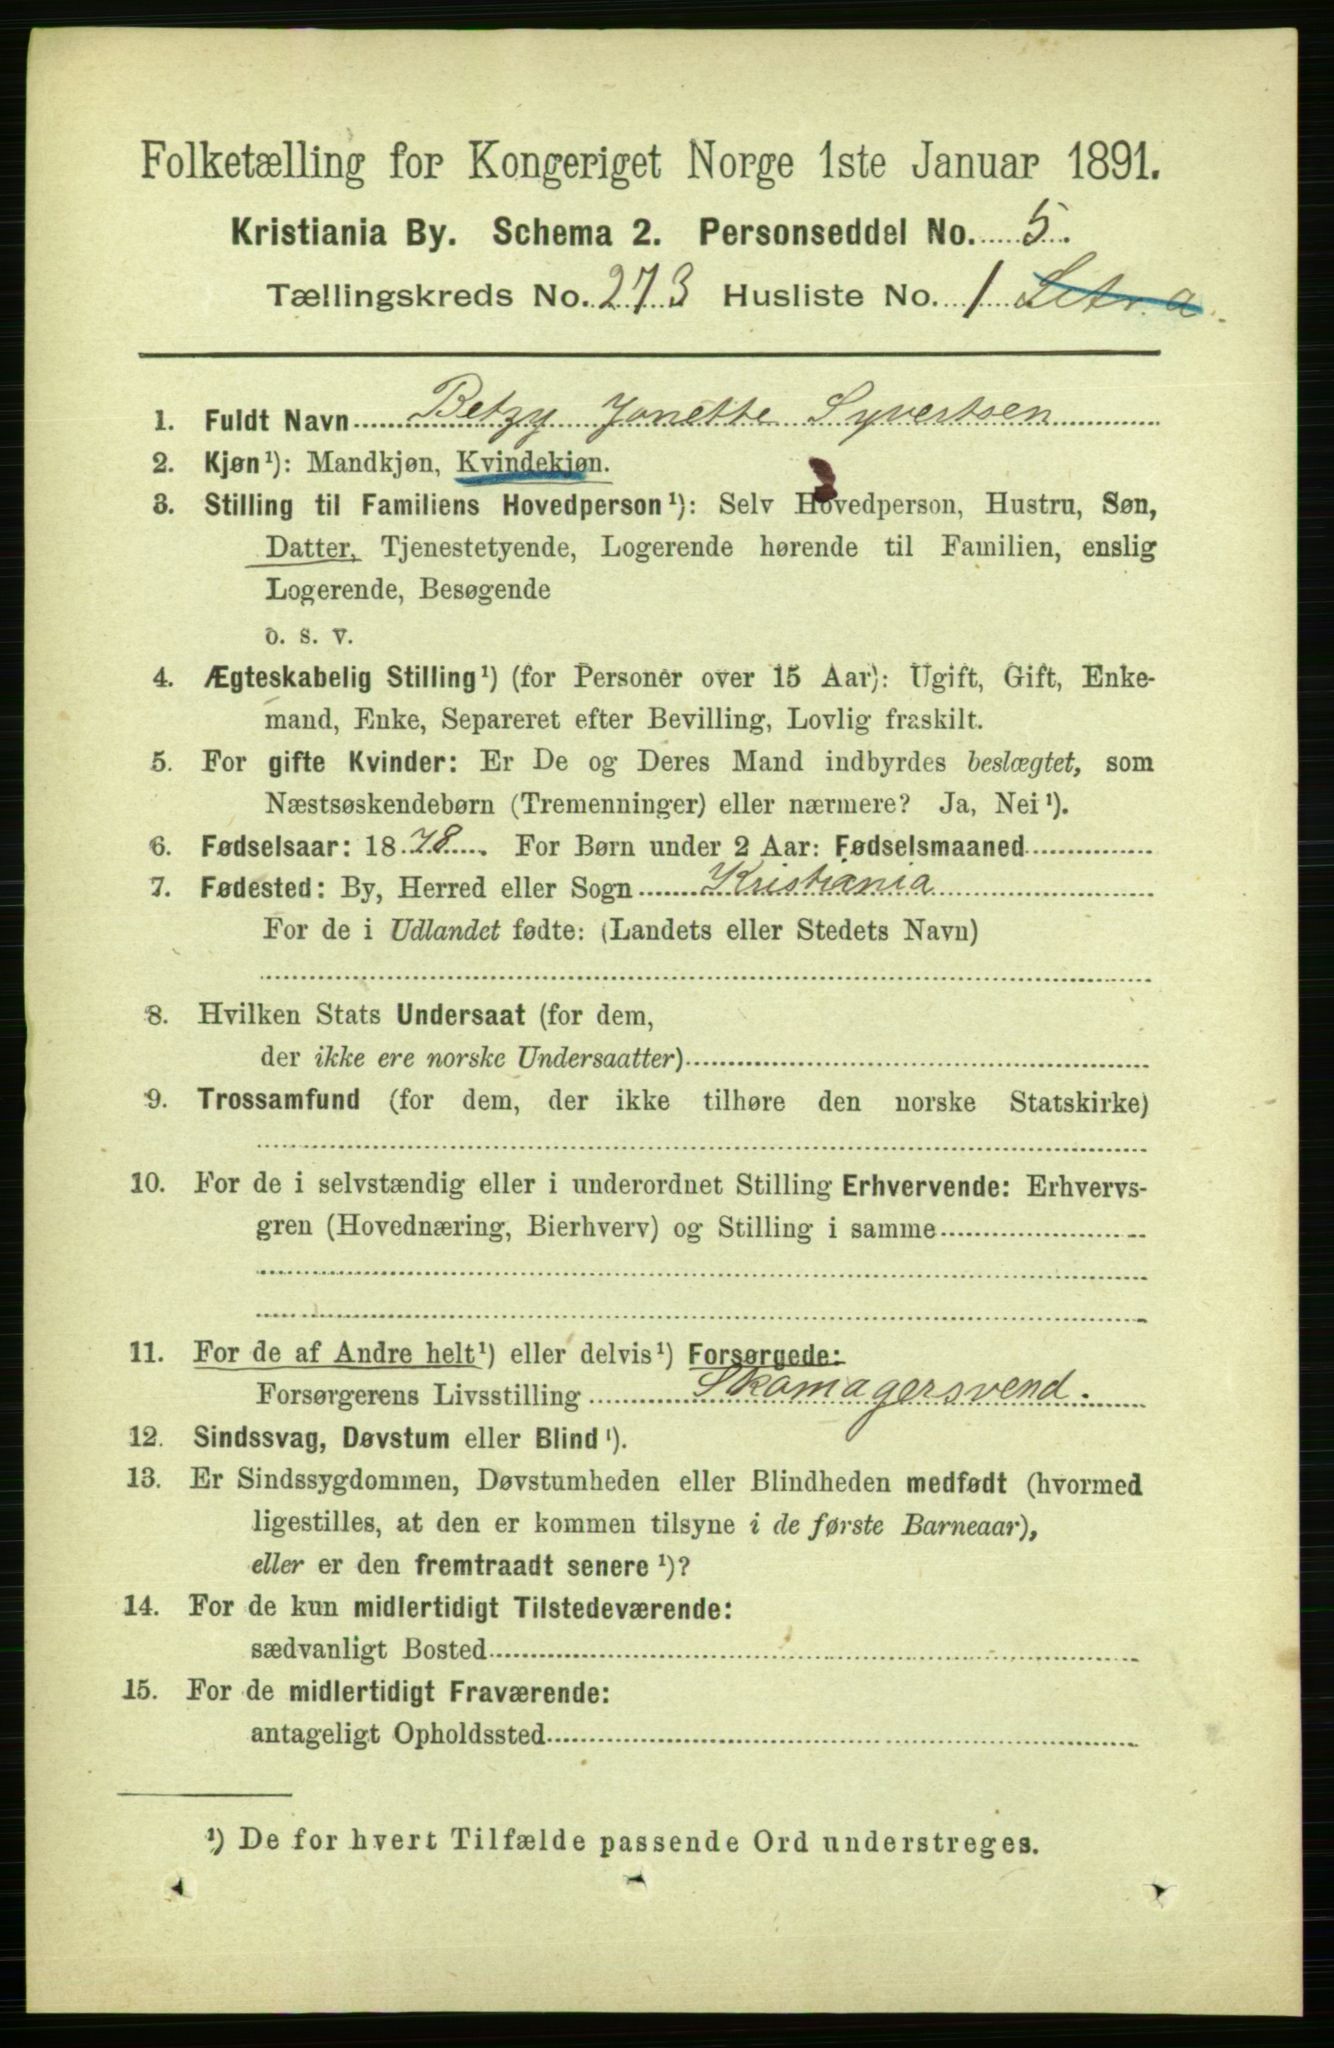 Folketælling for Kongeriget Norge 1ste Januar 1891.
Kristiania By. Schema 2. Personseddel No. 5.
Tællingskreds No. 273 Husliste No. 1 Litr. a.
1. Fuldt Navn Betzy Jonette Syvertsen
2. Kjøn¹): Mandkjøn, Kvindekjøn.
3. Stilling til Familiens Hovedperson¹): Selv Hovedperson, Hustru, Søn,
Datter, Tjenestetyende, Logerende hørende til Familien, enslig
Logerende, Besøgende
o. s. v.
4. Ægteskabelig Stilling¹) (for Personer over 15 Aar): Ugift, Gift, Enke-
mand, Enke, Separeret efter Bevilling, Lovlig fraskilt.
5. For gifte Kvinder: Er De og Deres Mand indbyrdes beslægtet, som
Næstsøskendebørn (Tremenninger) eller nærmere? Ja, Nei¹).
6. Fødselsaar: 1878. For Børn under 2 Aar: Fødselsmaaned
7. Fødested: By, Herred eller Sogn Kristiania
For de i Udlandet fødte: (Landets eller Stedets Navn)
8. Hvilken Stats Undersaat (for dem,
der ikke ere norske Undersaatter)
9. Trossamfund (for dem, der ikke tilhøre den norske Statskirke)
10. For de i selvstændig eller i underordnet Stilling Erhvervende: Erhvervs-
gren (Hovednæring, Bierhverv) og Stilling i samme
11. For de af Andre helt¹) eller delvis¹) Forsørgede:
Forsørgerens Livsstilling Skomagersvend.
12. Sindssvag, Døvstum eller Blind¹).
13. Er Sindssygdommen, Døvstumheden eller Blindheden medfødt (hvormed
ligestilles, at den er kommen tilsyne i de første Barneaar),
eller er den fremtraadt senere¹)?
14. For de kun midlertidigt Tilstedeværende:
sædvanligt Bosted
15. For de midlertidigt Fraværende:
antageligt Opholdssted
¹) De for hvert Tilfælde passende Ord understreges.